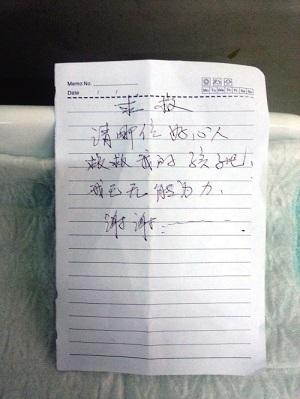 Memo No.
Mo Tu We Th Fr Sa Su
Date / /
求救
请哪位好心人
救救我的孩子吧!
我已无能为力.
谢谢!